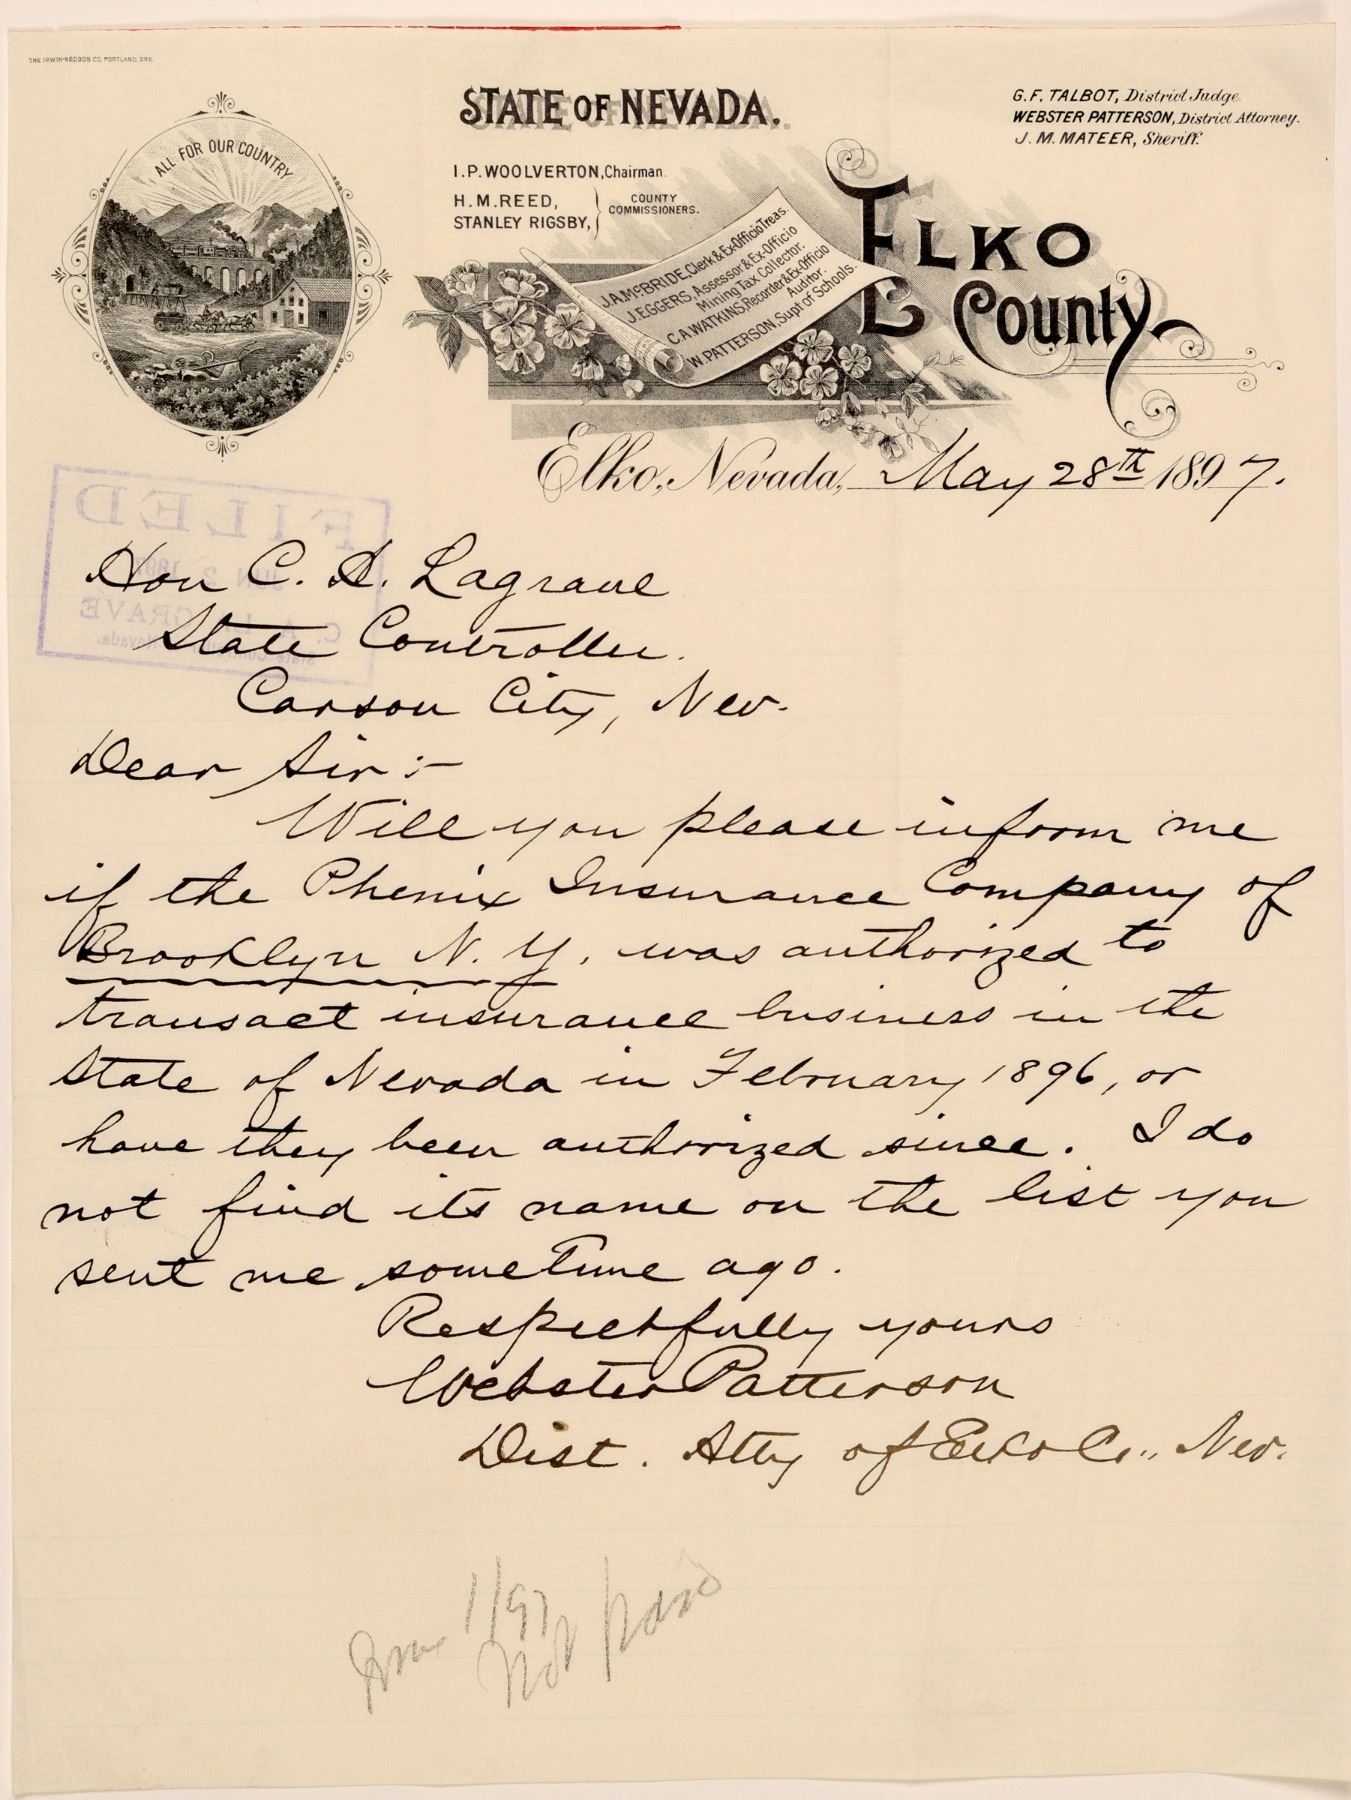 THE IRWIN-HODSON CO. PORTLAND, ORE.
ALL FOR OUR COUNTRY
STATE OF NEVADA.
G. F. TALBOT, District Judge.
WEBSTER PATTERSON, District Attorney.
J. M. MATEER, Sheriff.
I. P. WOOLVERTON, Chairman.
H. M. REED,
STANLEY RIGSBY,
COUNTY
COMMISSIONERS.
J.A. McBRIDE, Clerk & Ex-Officio Treas.
J. EGGERS, Assessor & Ex-Officio
Mining Tax Collector.
C. A. WATKINS, Recorder & Ex-Officio
Auditor.
W. PATTERSON, Supt of Schools.
ELKO
County
Elko, Nevada, May 28th 1897.
FILED
JUN 2 189
GRAVE
Nevada.
Hon C. A. Lagrave
State Controller.
Carson City, Nev.
Dear Sir :-
Will you please inform me
if the Phenix Insurance Company of
Brooklyn N. Y. was authorized to
transact insurance business in the
State of Nevada in February 1896, or
have they been authorized since. I do
not find its name on the list you
sent me sometime ago.
Respectfully yours
Webster Patterson
Dist. Atty of Elko Co., Nev.
1/97
Not paid